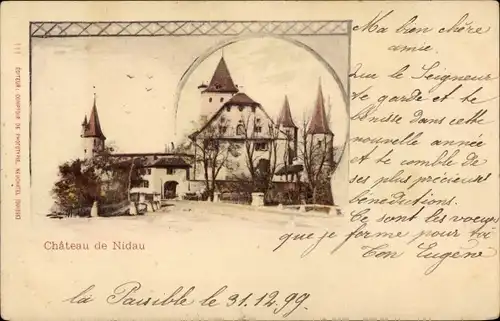 111 EDITEUR, COMPTOIR DE PHOTOTYPIE, NEUCHATEL (SUISSE)
Ma bien chère
amie.
Que le Seigneur
te garde et te
bénisse dans cette
nouvelle année
et te comble de
ses plus précieuses
bénédictions.
Ce sont les voeux
que je forme pour toi
Ton Eugène
Château de Nidau
la Paisible le 31.12.99.